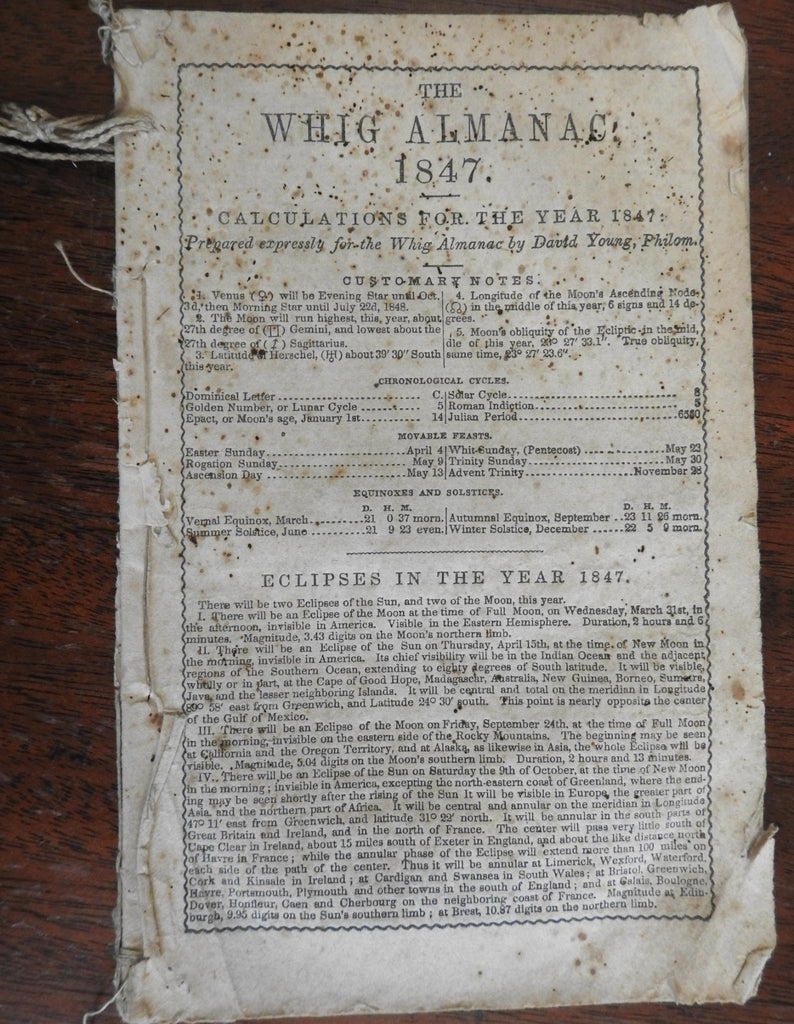 THE
WHIG ALMANAC
1847.
CALCULATIONS FOR THE YEAR 1847:
Prepared expressly for the Whig Almanac by David Young, Philom.
CUSTOMARY NOTES.
1. Venus (♀) will be Evening Star until Oct.
3d, then Morning Star until July 22d, 1848.
2. The Moon will run highest, this, year, about
27th degree of (♊) Gemini, and lowest about the
27th degree of (♐) Sagittarius.
3. Latitude of Herschel, (♅) about 39' 30" South
this year.
4. Longitude of the Moon's Ascending Node
(☊) in the middle of this year, 6 signs and 14 de-
grees.
5. Moon's obliquity of the Ecliptic in the mid,
dle of this year, 23° 27' 33.1". True obliquity,
same time, 23° 27' 23.6".
CHRONOLOGICAL CYCLES.
Dominical Letter ........ C.
Golden Number, or Lunar Cycle ........ 5
Epact, or Moon's age, January 1st........ 14
Solar Cycle........ 8
Roman Indiction........ 5
Julian Period........ 6560
MOVABLE FEASTS.
Easter Sunday........ April 4
Rogation Sunday........ May 9
Ascension Day ........ May 13
Whit-Sunday, (Pentecost) ........ May 23
Trinity Sunday........ May 30
Advent Trinity........ November 28
EQUINOXES AND SOLSTICES.
D. H. M.
Vernal Equinox, March........21 0 37 morn.
Summer Solstice, June ........21 9 23 even.
D. H. M.
Autumnal Equinox, September ..23 11 26 morn.
Winter Solstice, December ......22 5 0 morn.
ECLIPSES IN THE YEAR 1847.
There will be two Eclipses of the Sun, and two of the Moon, this year.
I. There will be an Eclipse of the Moon at the time of Full Moon, on Wednesday, March 31st, in
the afternoon, invisible in America. Visible in the Eastern Hemisphere. Duration, 2 hours and 6
minutes. Magnitude, 3.43 digits on the Moon's northern limb.
II. There will be an Eclipse of the Sun on Thursday, April 15th, at the time of New Moon in
the morning, invisible in America. Its chief visibility will be in the Indian Ocean and the adjacent
regions of the Southern Ocean, extending to eighty degrees of South latitude. It will be visible,
wholly or in part, at the Cape of Good Hope, Madagascar, Australia, New Guinea, Borneo, Sumatra,
Java, and the lesser neighboring Islands. It will be central and total on the meridian in Longitude
89° 58' east from Greenwich, and Latitude 24° 30' south. This point is nearly opposite the center
of the Gulf of Mexico.
III. There will be an Eclipse of the Moon on Friday, September 24th, at the time of Full Moon
in the morning, invisible on the eastern side of the Rocky Mountains. The beginning may be seen
at California and the Oregon Territory, and at Alaska, as likewise in Asia, the whole Eclipse will be
visible. Magnitude, 5.04 digits on the Moon's southern limb. Duration, 2 hours and 13 minutes.
IV. There will be an Eclipse of the Sun on Saturday the 9th of October, at the time of New Moon
in the morning; invisible in America, excepting the north-eastern coast of Greenland, where the end-
ing may be seen shortly after the rising of the Sun It will be visible in Europe, the greater part of
Asia, and the northern part of Africa. It will be central and annular on the meridian in Longitude
47° 11' east from Greenwich, and latitude 31° 22' north. It will be annular in the south parts of
Great Britain and Ireland, and in the north of France. The center will pass very little south of
Cape Clear in Ireland, about 15 miles south of Exeter in England, and about the like distance north
of Havre in France; while the annular phase of the Eclipse will extend more than 100 miles on
each side of the path of the center. Thus it will be annular at Limerick, Wexford, Waterford,
Cork and Kinsale in Ireland; at Cardigan and Swansea in South Wales; at Bristol, Greenwich,
Havre, Portsmouth, Plymouth and other towns in the south of England; and at Calais, Boulogne,
Dover, Honfleur, Caen and Cherbourg on the neighboring coast of France. Magnitude at Edin-
burgh, 9.95 digits on the Sun's southern limb; at Brest, 10.87 digits on the northern limb.